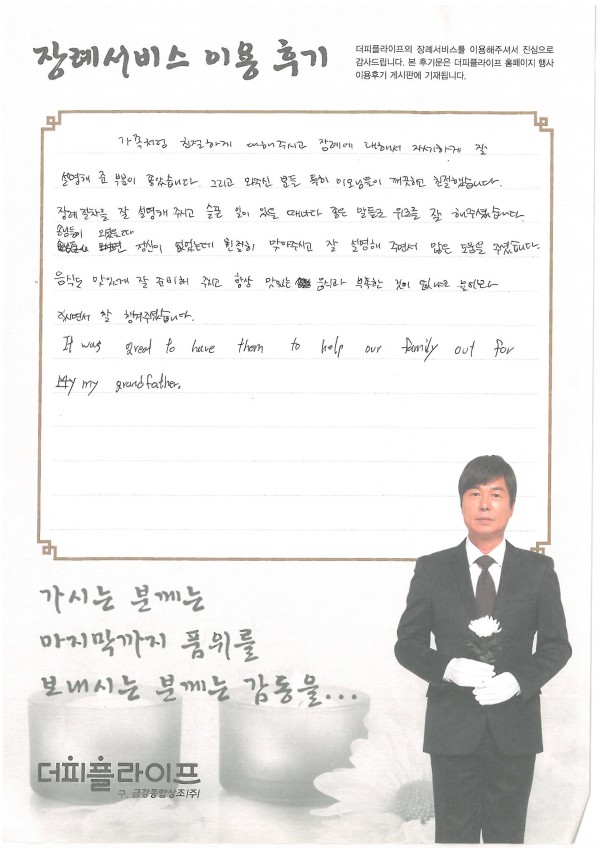 장례서비스 이용 후기
더피플라이프의 장례서비스를 이용해주셔서 진심으로
감사드립니다. 본 후기문은 더피플라이프 홈페이지 행사
이용후기 게시판에 기재됩니다.
가족처럼 친절하게 대해주시고 장례에 대해서 자세하게 잘
설명해 준 부분이 좋았습니다. 그리고 와주신 분들 특히 이모님들이 깨끗하고 친절했습니다.
장례 절차를 잘 설명해 주시고 슬픈 일이 있을 때마다 좋은 말들로 위로를 잘 해주셨습니다.
손님들이 오셨는데
정신이 없었는데 친절히 맞아주시고 잘 설명해 주면서 많은 도움을 주셨습니다.
음식는 맛있게 잘 준비해 주시고 항상 맛있는 음식과 부족한 것이 없냐고 물어보다
주시면서 잘 챙겨주셨습니다.
It was great to have them to help our family out for
my grandfather.
가시는 분께는
마지막까지 품위를
보내시는 분께는 감동을...
더피플라이프
구. 금강종합상조(주)